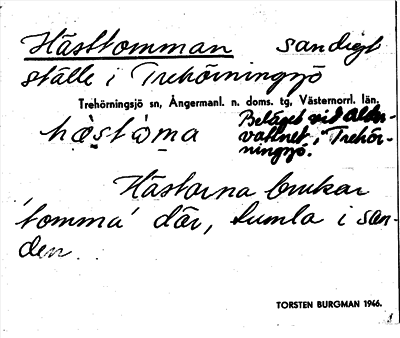 Hästtomman sandigt
ställe i Trehörningsjö
Trehörningsjö sn, Ångermanl. n. doms. tg, Västernorrl. län.
Beläget vid
vattnet i Trehör-
ningsjö.
Hästarna brukar
'tomma' där, tumla i san-
den.
TORSTEN BURGMAN 1946.
1